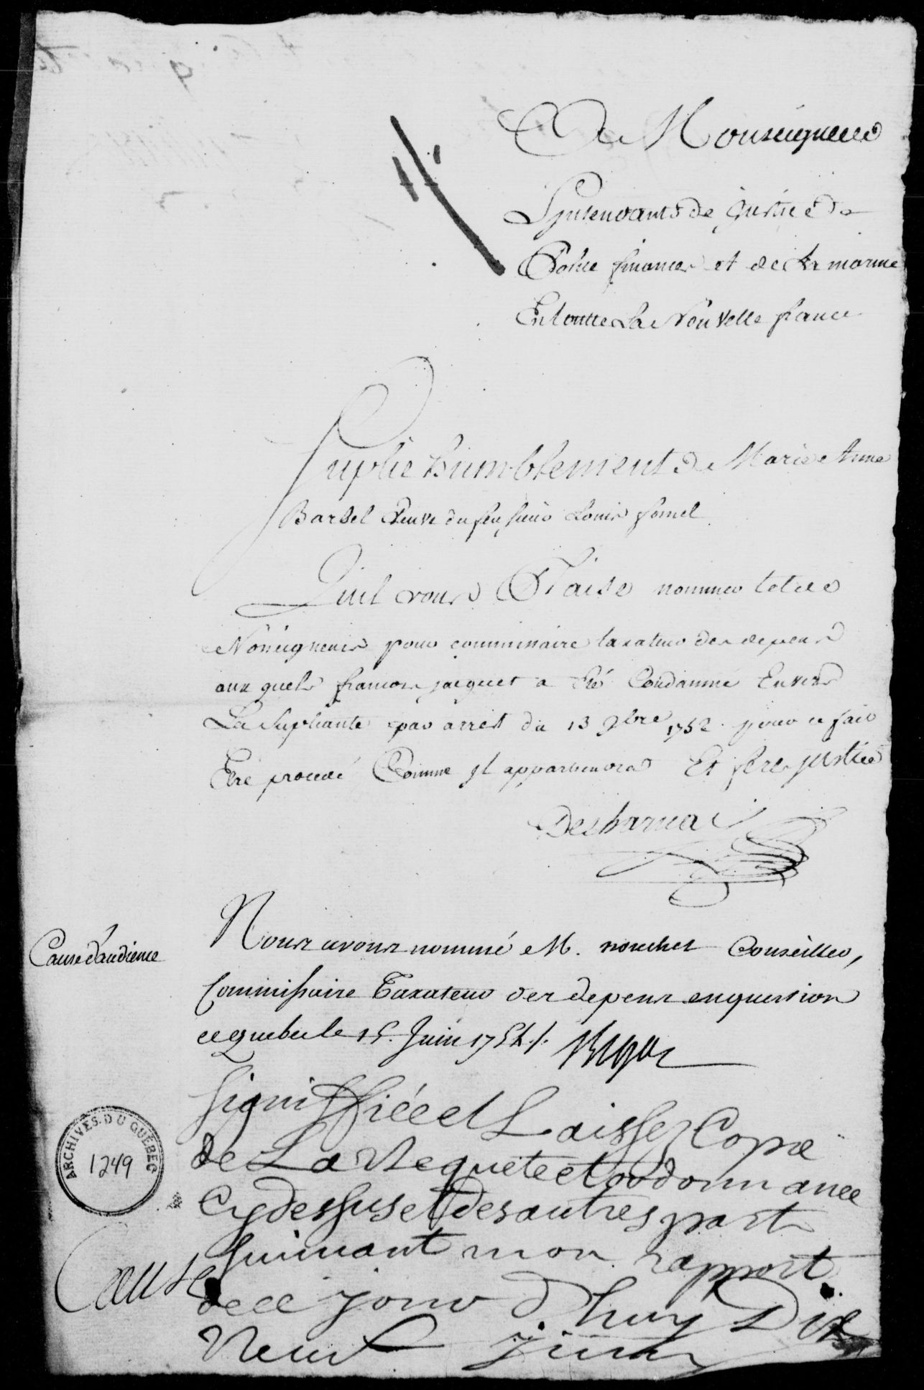 De Monseigneur
L'Jntendant de justice de
Police finances et de La marine
En toutte La Nouvelle france
Suplie humblement de Marie Anne
Barbel Veuve du feu sieur Louis fornel
Quil vous Plaise nommer tel de
Nosseigneurs pour commissaire taxateur des depens
aux quels francois jacquet a Eté Condamné Envers
La Supliante par arrest du 13 9bre 1752 pour ce fait
Etre procedé Comme jl appartiendra Et fere justice
Desharnai
Cause d'audience
Nous avons nommé M. nouchet Conseiller,
Commissaire Taxateur des depens en question
a quebec le 15 Juin 1754 /.
Bigot
Signiffiée et Laissez Copie
de La Requete et ordonnance
Cy dessus et des autres part
suivant mon rapport
de ce jour d'huy Dix
Neuf juin
Cause
ARCHIVES DU QUÉBEC
1249